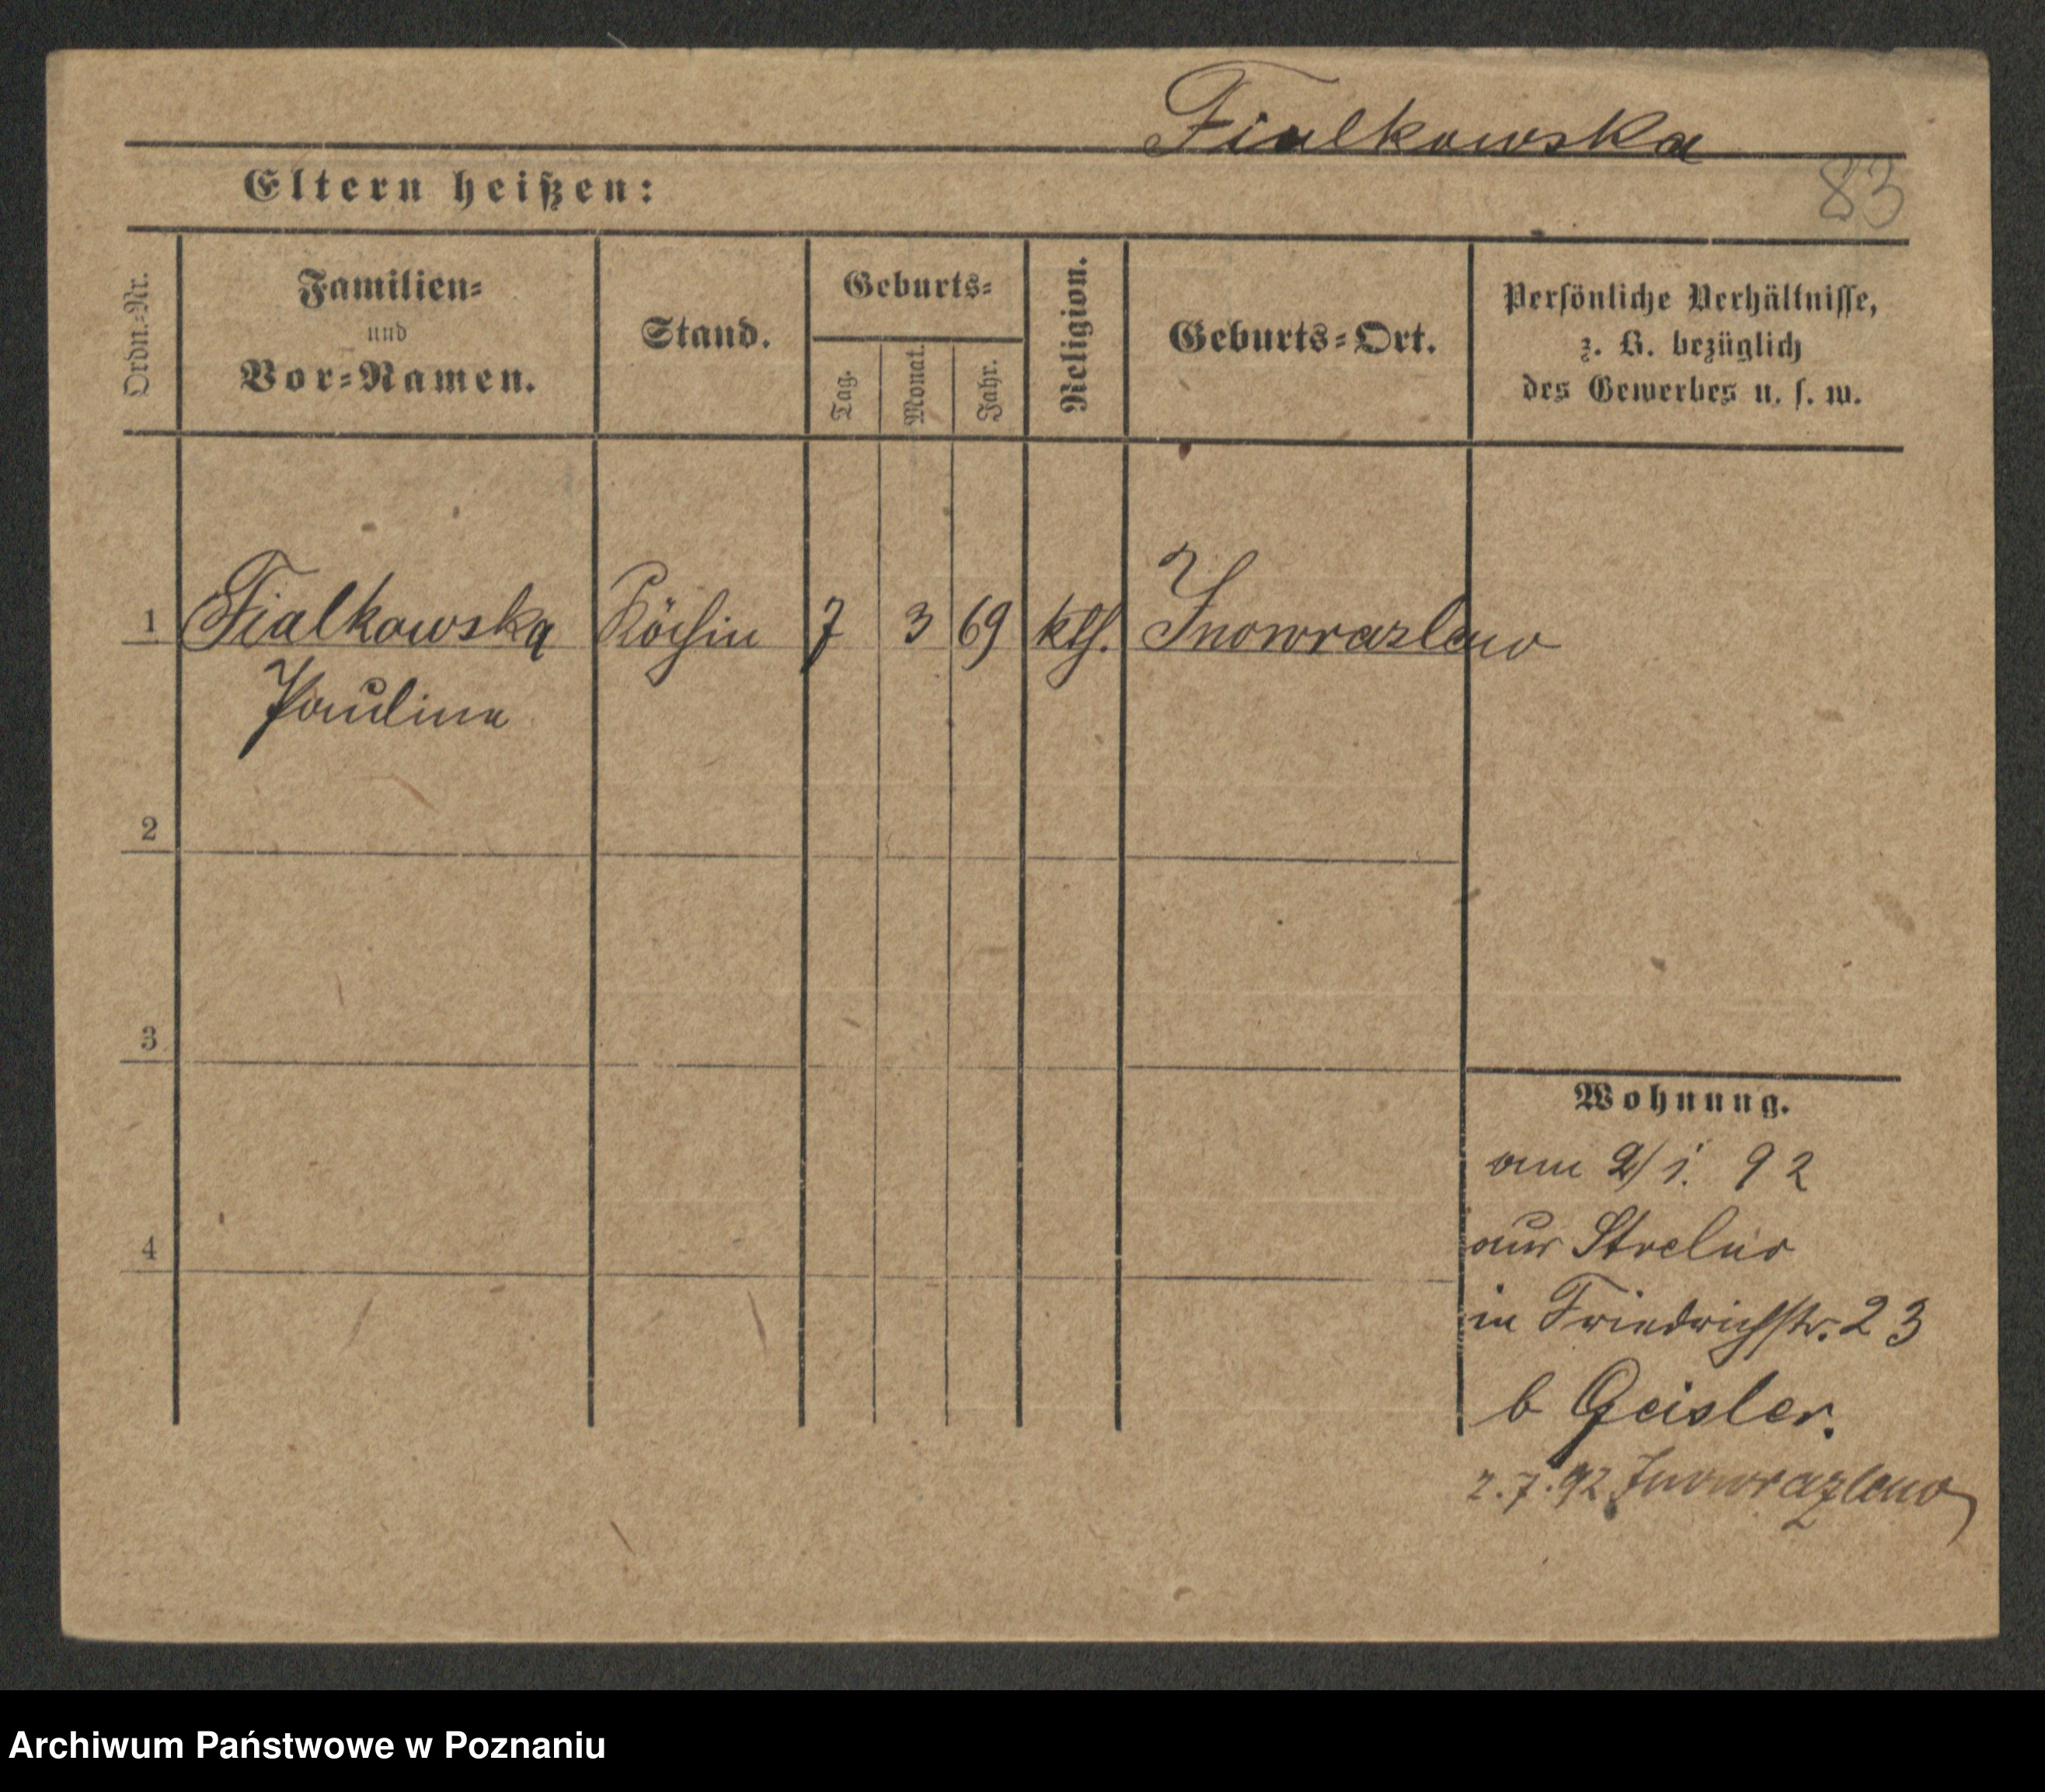 Fialkowska
83
Eltern heißen:
Ordn.-Nr.
Familien-
und
Vor-Namen.
Stand.
Geburts-
Tag.
Monat.
Jahr.
Religion.
Geburts-Ort.
Persönliche Verhältnisse,
z. B. bezüglich
des Gewerbes u. s. w.
1 Fialkowska Köchin 7 3 69 kth. Inowrazlaw
Paulina
2
3
4
Wohnung.
am 2/1. 92
aus Strelno
in Friedrichstr. 23
b Geisler.
2.7.92 Inowrazlaw
Archiwum Państwowe w Poznaniu